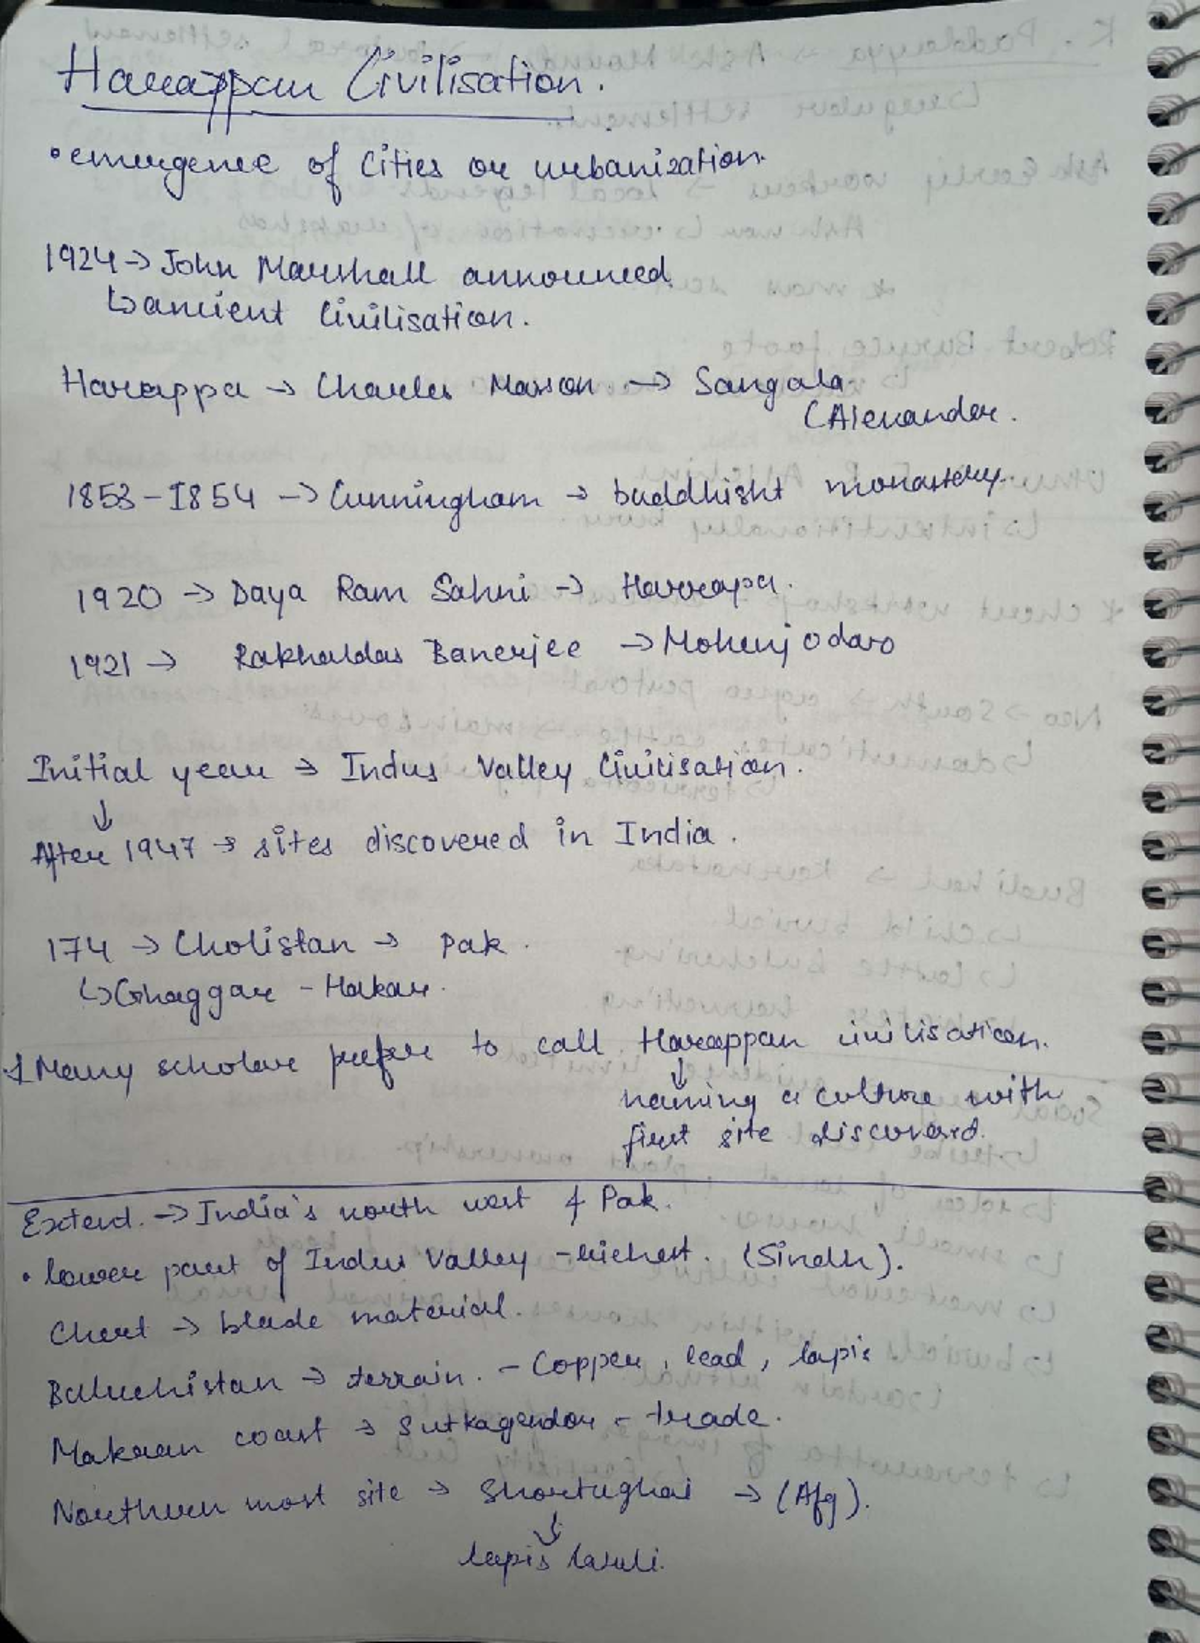 Harappan Civilisation.
• emergence of Cities or urbanization.
1924 → John Marshall announced
↳ ancient Civilisation.
Harappa → Charles Masson → Sangala
(Alexander.
1853-1854 → Cunningham → buddhisht monastery.
1920 → Daya Ram Sahni → Harrapa.
1921 → Rakhaldas Banerjee → Mohenjodaro
Initial year → Indus Valley Civilisation.
↓
After 1947 → sites discovered in India.
174 → Cholistan → Pak.
↳ Ghaggar - Hakar.
Many scholar prefer to call Harappan civilisation.
↓
naming a culture with
first site discoverd.
Extend. → India's north west & Pak.
• lower part of Indus Valley - richest. (Sindh).
Chert → blade material.
Baluchistan → terrain. - Copper, lead, lapis
Makaran coast → Sutkagendor - trade.
Northern most site → Shortughai → (Afg).
↓
lapis lazuli.